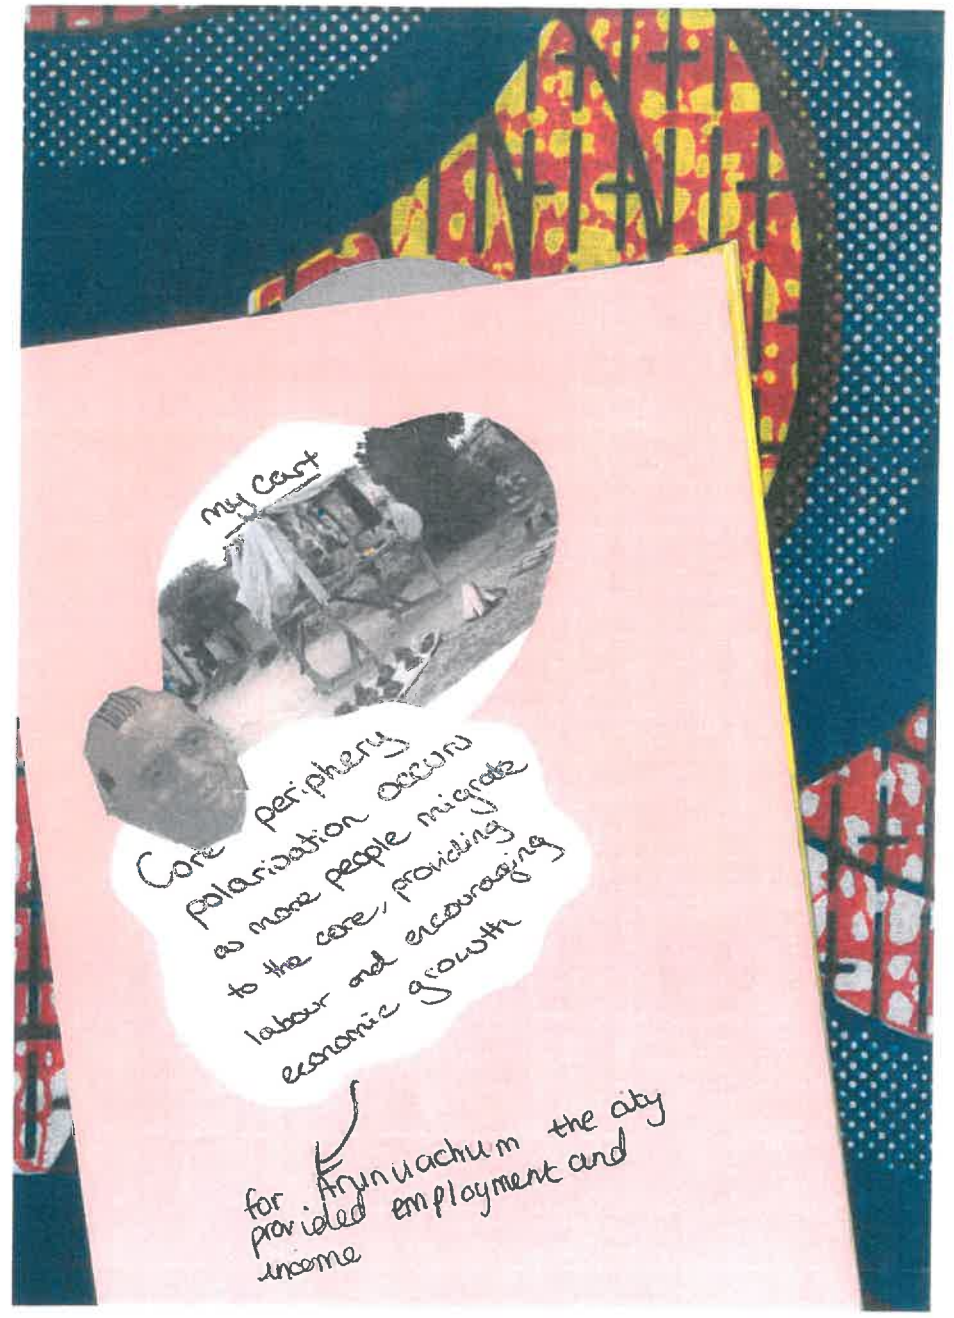 my cart
Core periphery
polarisation occurs
as more people migrate
to the core, providing
labour and encouraging
economic growth
for the city
provided employment and
income